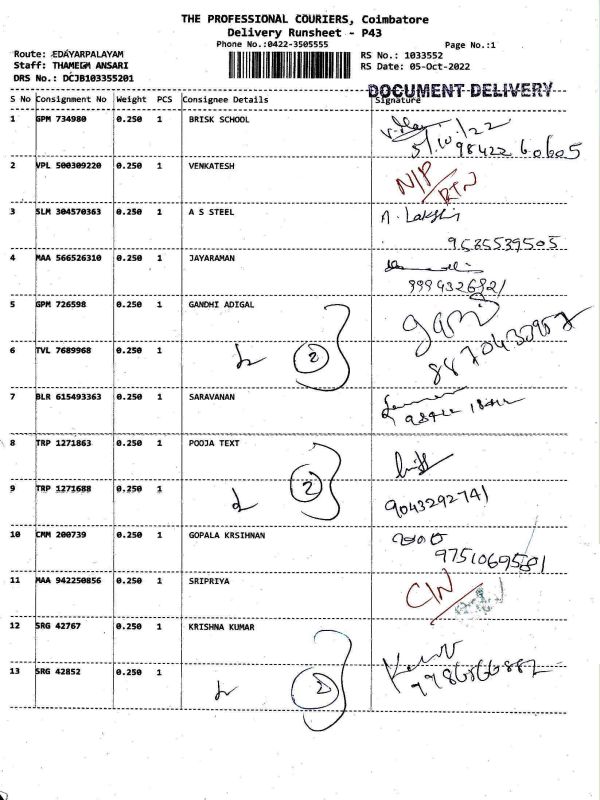 THE PROFESSIONAL COURIERS, Coimbatore
Delivery Runsheet - P43
Phone No.:0422-3505555 Page No.:1
Route: EDAYARPALAYAM RS No.: 1033552
Staff: THAMEEM ANSARI RS Date: 05-Oct-2022
DRS No.: DCJB103355201
DOCUMENT DELIVERY
S No Consignment No Weight PCS Consignee Details Signature
1 GPM 734980 0.250 1 BRISK SCHOOL
5/10/22
98422 60605
2 VPL 500309220 0.250 1 VENKATESH N/P
RTN
3 SLM 304570363 0.250 1 A S STEEL A. Lakshi
9585539505
4 MAA 566526310 0.250 1 JAYARAMAN
5 GPM 726598 0.250 1 GANDHI ADIGAL
6 TVL 7689968 0.250 1 2
7 BLR 615493363 0.250 1 SARAVANAN
8 TRP 1271863 0.250 1 POOJA TEXT
9 TRP 1271688 0.250 1 2 9043292741
10 CMM 200739 0.250 1 GOPALA KRSIHNAN
9751069581
11 MAA 942250856 0.250 1 SRIPRIYA
12 SRG 42767 0.250 1 KRISHNA KUMAR
13 SRG 42852 0.250 1 2